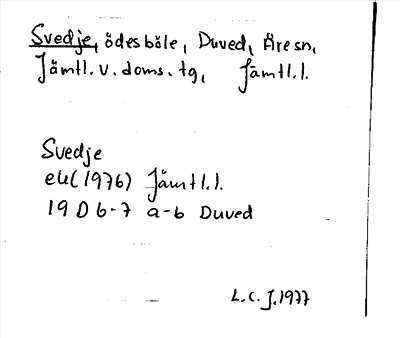 Svedje, ödesböle, Duved, Åre sn,
Jämtl. v. doms. tg, Jämtl. l.
Svedje
ek (1976) Jämtl. l.
19 D 6-7 a-b Duved
L.C.J. 1977